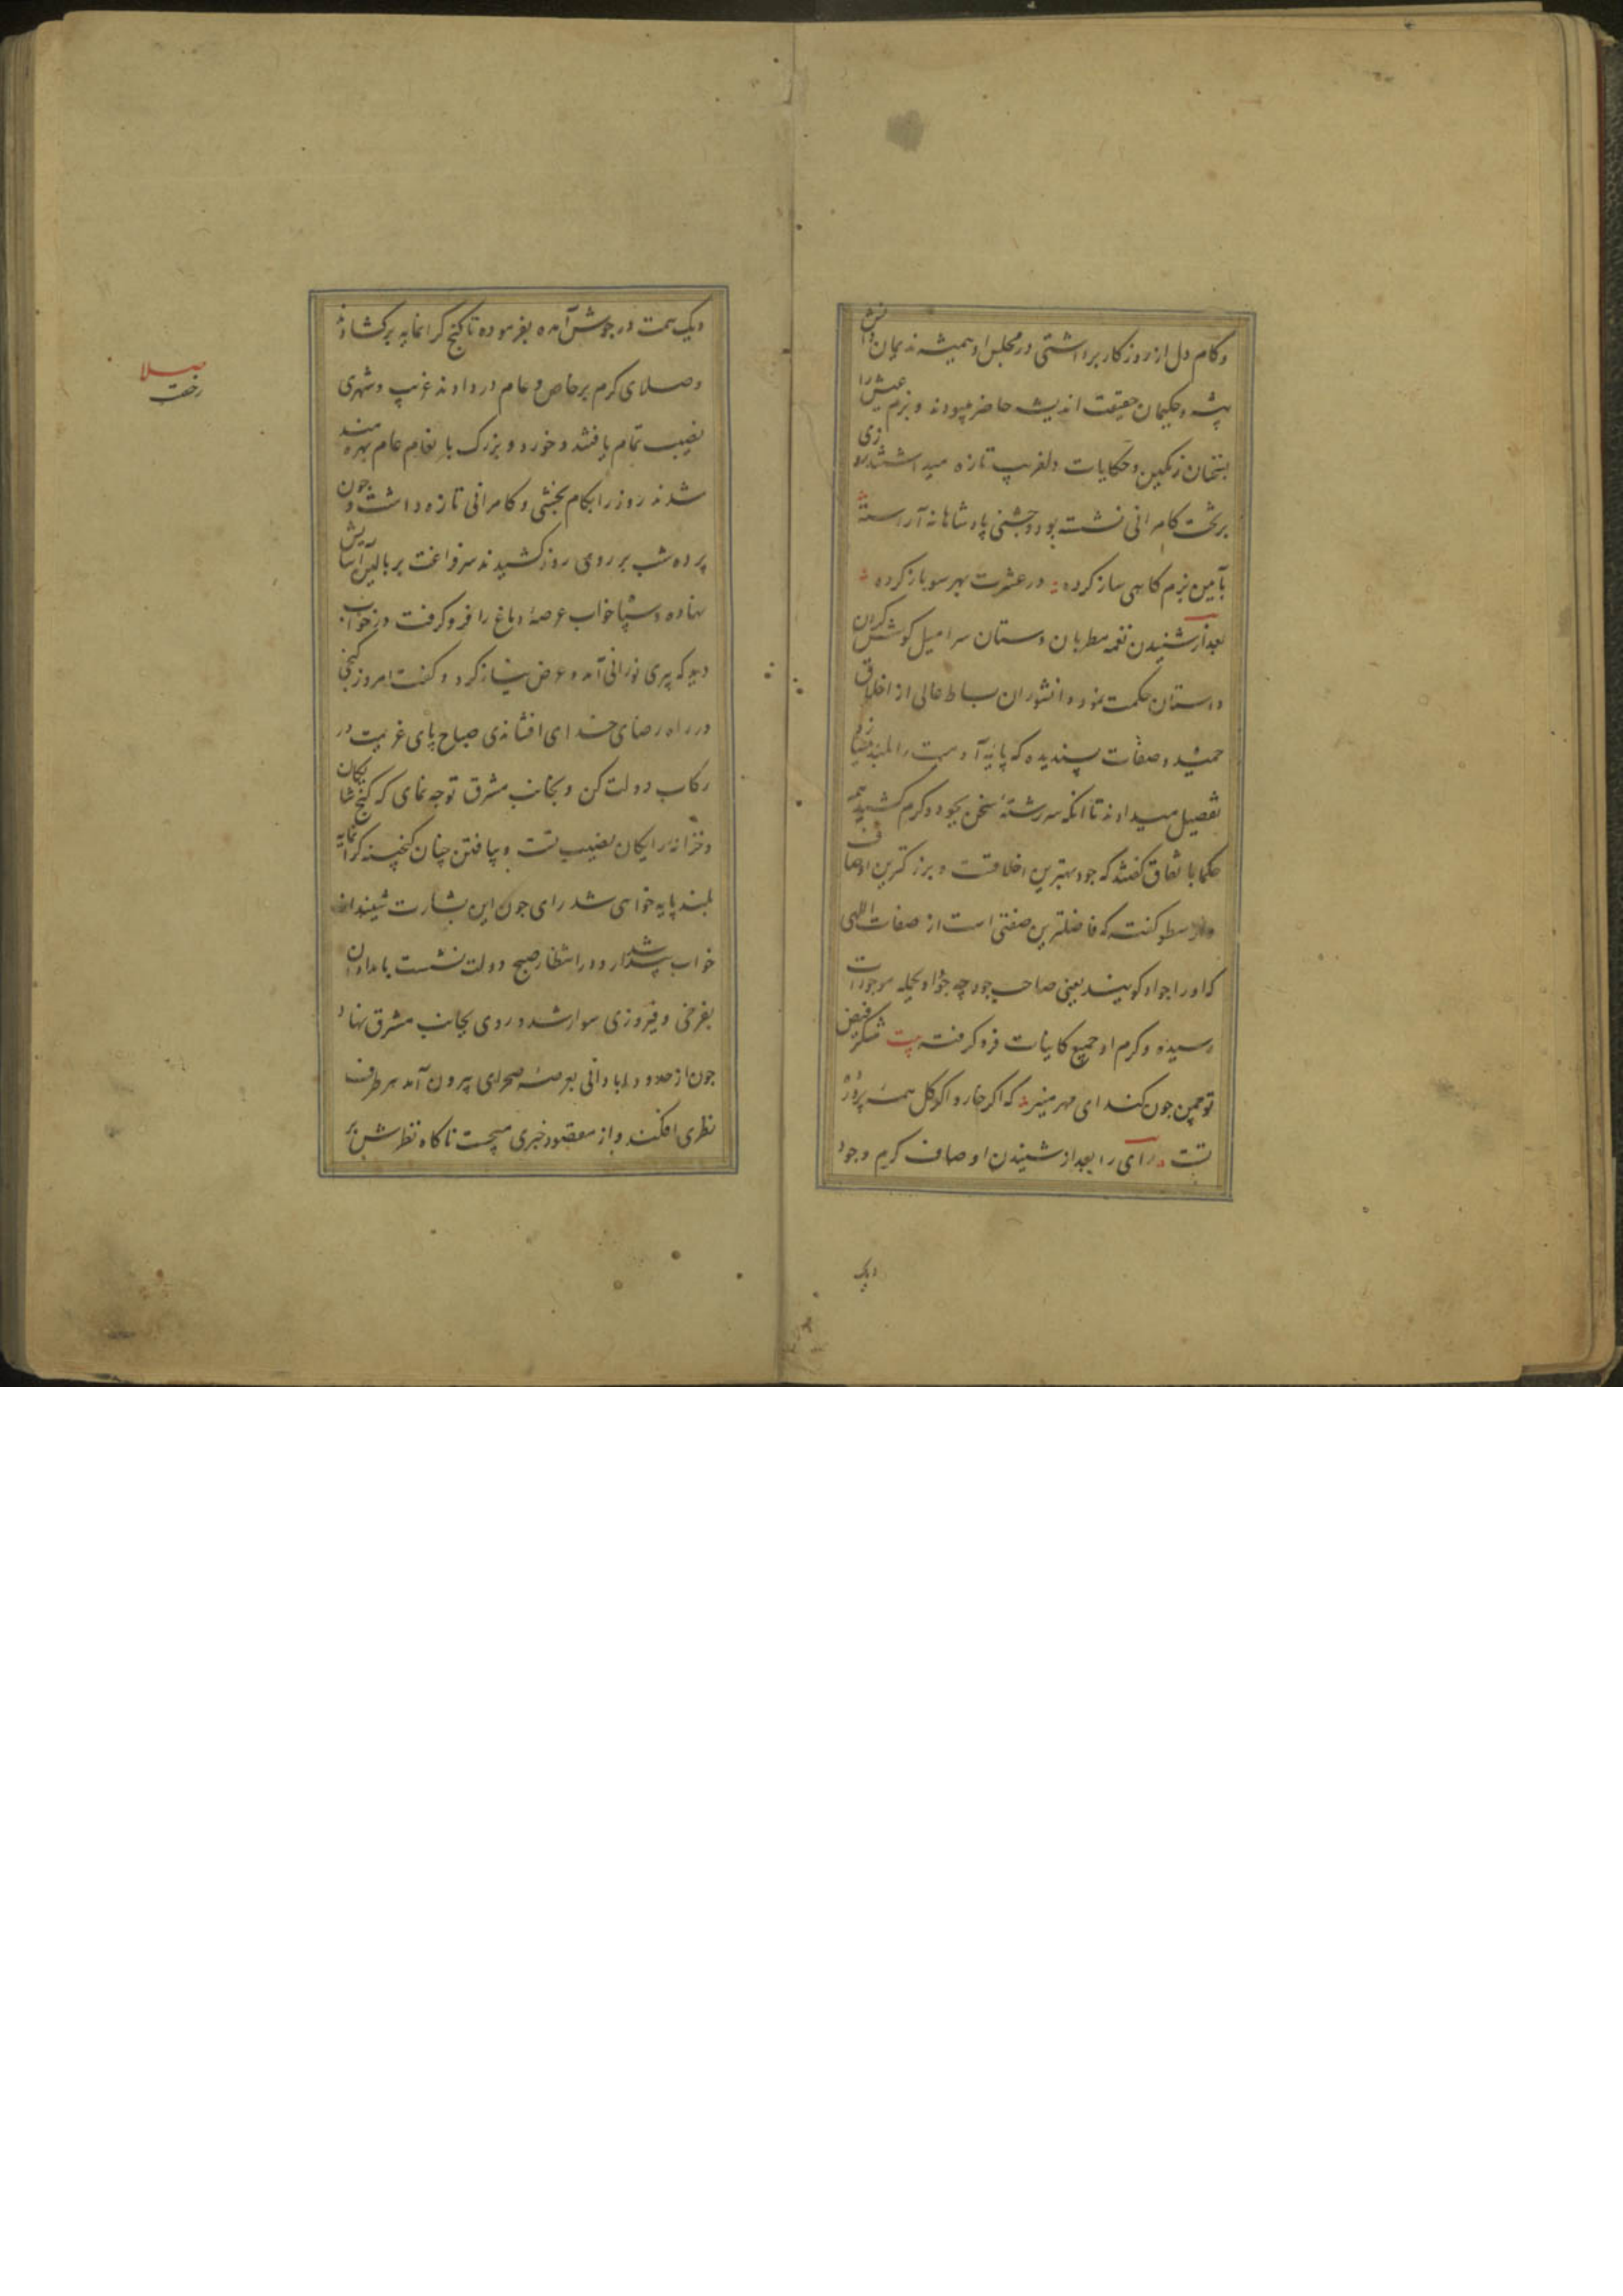 وکام دل از روزکار برداشتی در مجلس او همیشه ندیمان دانش
پیشه و حکیمان حقیقت اندیشه حاضر میبودند و بزم عیش را
بسخنان رنکین و حکایات دلفریب تازه میداشتند روزی
برتخت کامرانی نشسته بود و جشنی پادشاهانه آراسته
بآیین بزم کاهی ساز کرده در عشرت بهر سو باز کرده
بعد از شنیدن نغمه مطربان دستان سرا میل کوش کردن
داستان حکمت نمود دانشوران بساط عالی از اخلاق
حمیده و صفات پسندیده که پایه آدمیت را بلند میسازد
تفصیل میدادند تا انکه سررشته سخن بجود و کرم کشید همه
حکما باتفاق کفتند که جود بهترین اخلاقست و بزرکترین اوصاف
وارسطو کفته که فاضلترین صفتی است از صفات اللهی
که او را جواد کویند یعنی صاحب جود چه جود او بجمله موجودات
رسیده و کرم او جمیع کاینات فرو کرفته بیت شکر فیض
تو چمن چون کند ای مهر منیر که اکر خار و اکر کل همه پرورده
تست رای را بعد از شنیدن اوصاف کرم و جود
دیک
دیک همت در جوش آمده بفرموده تا کنج کرانمایه برکشادند
وصلای کرم بر خاص و عام در دادند غریب و شهری
نصیب تمام یافتند و خورد و بزرک بانعام عام بهره مند
شدند روز را بکام بخشی و کامرانی تازه داشت و چون
پرده شب بر روی روز کشیدند سر فراغت بر بالین آسایش
نهاده و سپاه خواب عرصه دماغ را فرو کرفت در خواب
دید که پیری نورانی آمد و عرض نیاز کرد و کفت امروز کنجی
در راه رضای خدای افشاندی صباح پای عزیمت در
رکاب دولت کن و بجانب مشرق توجه نمای که کنج شایکان
و خزانه رایکان نصیب تست و بیافتن چنان کنجینه کرانمایه
بلند پایه خواهی شد رای چون این بشارت شنید از
خواب بیدار شد و در انتظار صبح دولت نشست بامدادان
بفرخی و فیروزی سوار شد و روی بجانب مشرق نهاد
چون از حدود آبادانی بعرصه صحرای بیرون آمد هر طرف
نظری افکند و از مقصود خبری میجست ناکاه نظرش بر
صلا